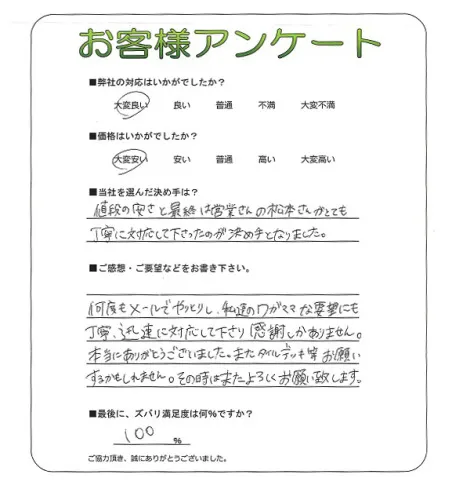 お客様アンケート
■弊社の対応はいかがでしたか?
大変良い 良い 普通 不満 大変不満
■価格はいかがでしたか?
大変安い 安い 普通 高い 大変高い
■当社を選んだ決め手は?
値段の安さと最終は営業さんの松本さんがとても
丁寧に対応して下さったのが決め手となりました。
■ご感想・ご要望などをお書き下さい。
何度もメールでやりとりし、私達のワガママな要望にも
丁寧、迅速に対応して下さり感謝しかありません。
本当にありがとうございました。またタイルデッキ等お願い
するかもしれません。その時はまたよろしくお願い致します。
■最後に、ズバリ満足度は何%ですか?
100 %
ご協力頂き、誠にありがとうございました。